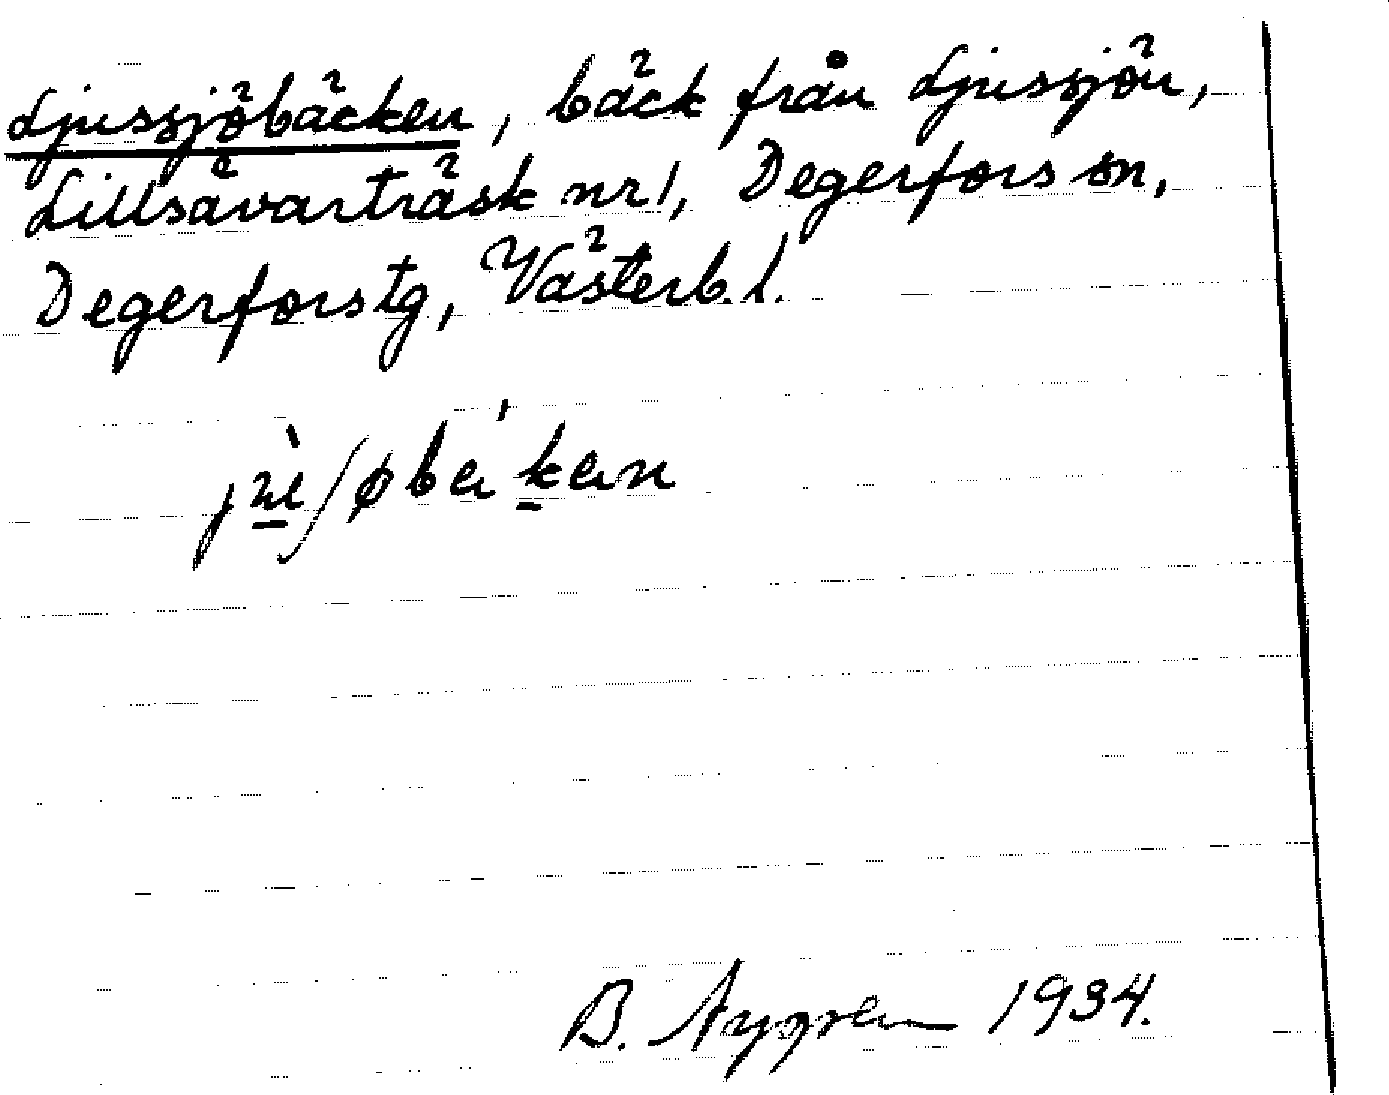 Ljussjöbäcken, bäck från Ljussjön,
Lillsävarträsk nr 1, Degerfors sn,
Degerfors tg, Västerb. l.
B. Nygren 1934.